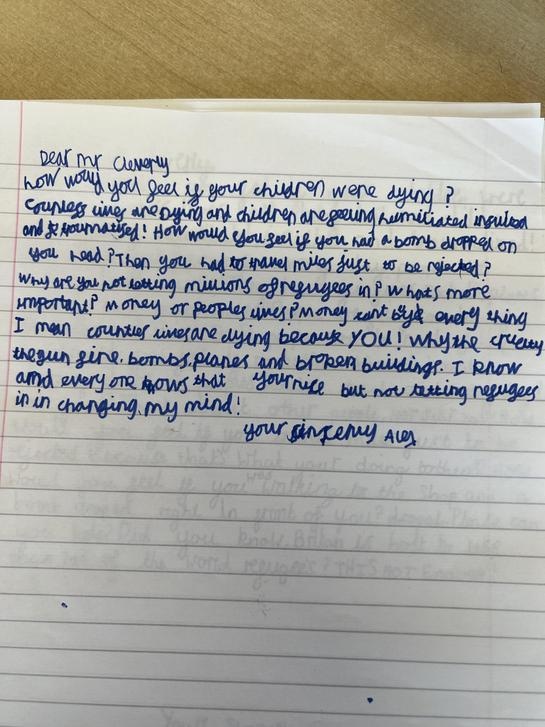 Dear Mr Cleverly
how would you feel if your children were dying?
Countless lives are Dying and children are feeling humiliated insulted
and traumatised! How would you feel if you had a bomb dropped on
you head? Then you had to travel miles just to be rejected?
why are you not letting millions of refugees in? Whats more
important? money or peoples lives? money cant by every thing
I mean countless lives are dying because YOU! Why the cruelty
the gun fire, bombs, planes and broken buildings. I know
and every one knows that your nice but not letting refugees
in in changing my mind!
your sincerely Alex